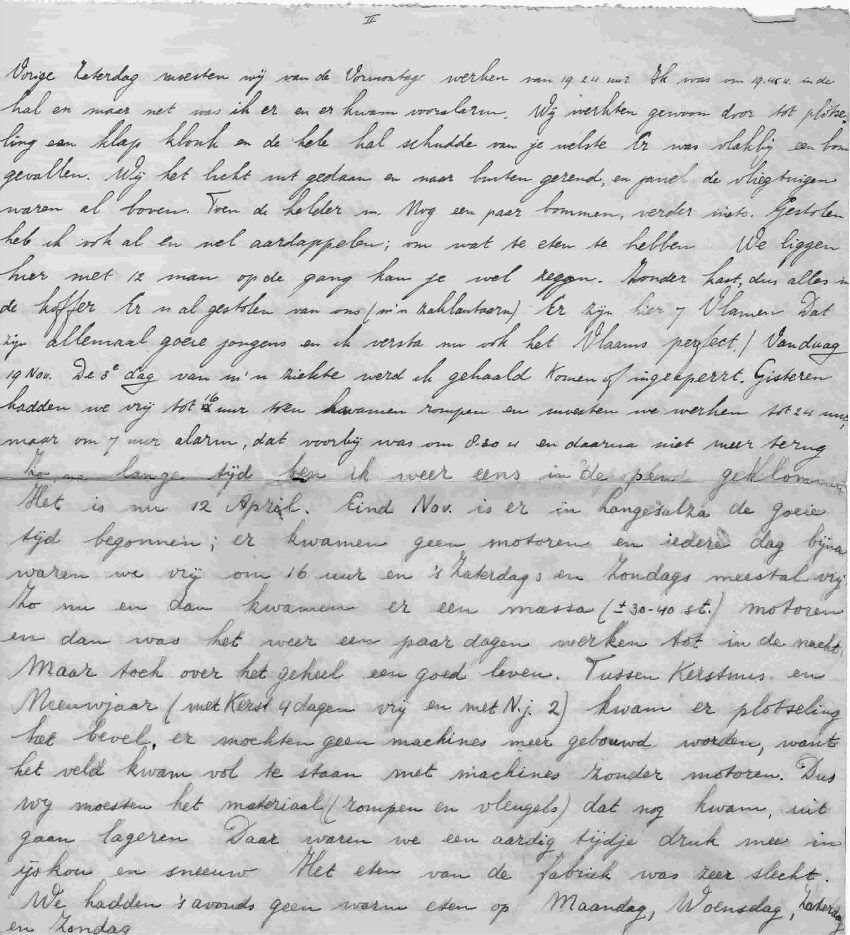 II
Vorige Zaterdag moesten wij van de Vormontage werken van 19 24 uur Ik was om 19.45 u. in de
hal en maar net was ik er en er kwam vooralarm. Wij werkten gewoon door tot plotse-
ling een klap klonk en de hele hal schudde van je welste Er was vlakbij een bom
gevallen. Wij het licht uit gedaan en naar buiten gerend, en de vliegtuigen
waren al boven. Toen de kelder in. Nog een paar bommen, verder niets. Gestolen
heb ik ook al en wel aardappelen; om wat te eten te hebben We liggen
hier met 12 man op de gang kan je wel zeggen. Zonder kast, dus alles in
de koffer Er is al gestolen van ons (m'n zaklantaarn) Er zijn hier 7 Vlamen Dat
zijn allemaal goeie jongens en ik versta nu ook het Vlaams perfect! Vandaag
19 Nov. De 3e dag van m'n ziekte werd ik gehaald Komen of ingesperrt. Gisteren
hadden we vrij tot 16 uur toen kwamen rompen en moesten we werken tot 24 uur,
maar om 7 uur alarm, dat voorbij was om 8.30 u en daarna niet meer terug
Zo, na lange tijd ben ik weer eens in de pen geklommen
Het is nu 12 April. Eind Nov. is er in Langesalza de goeie
tijd begonnen; er kwamen geen motoren en iedere dag bijna
waren we vrij om 16 uur en 's Zaterdags en Zondags meestal vrij
Zo nu en dan kwamen er een massa (± 30-40 st.) motoren
en dan was het weer een paar dagen werken tot in de nacht.
Maar toch over het geheel een goed leven. Tussen Kerstmis en
Nieuwjaar (met Kerst 4 dagen vrij en met N.j. 2) kwam er plotseling
het bevel, er mochten geen machines meer gebouwd worden, want
het veld kwam vol te staan met machines zonder motoren. Dus
wij moesten het materiaal (rompen en vleugels) dat nog kwam, uit
gaan lageren Daar waren we een aardig tijdje druk mee in
ijskou en sneeuw Het eten van de fabriek was zeer slecht.
We hadden 's avonds geen warm eten op Maandag, Woensdag, Zaterdag
en Zondag